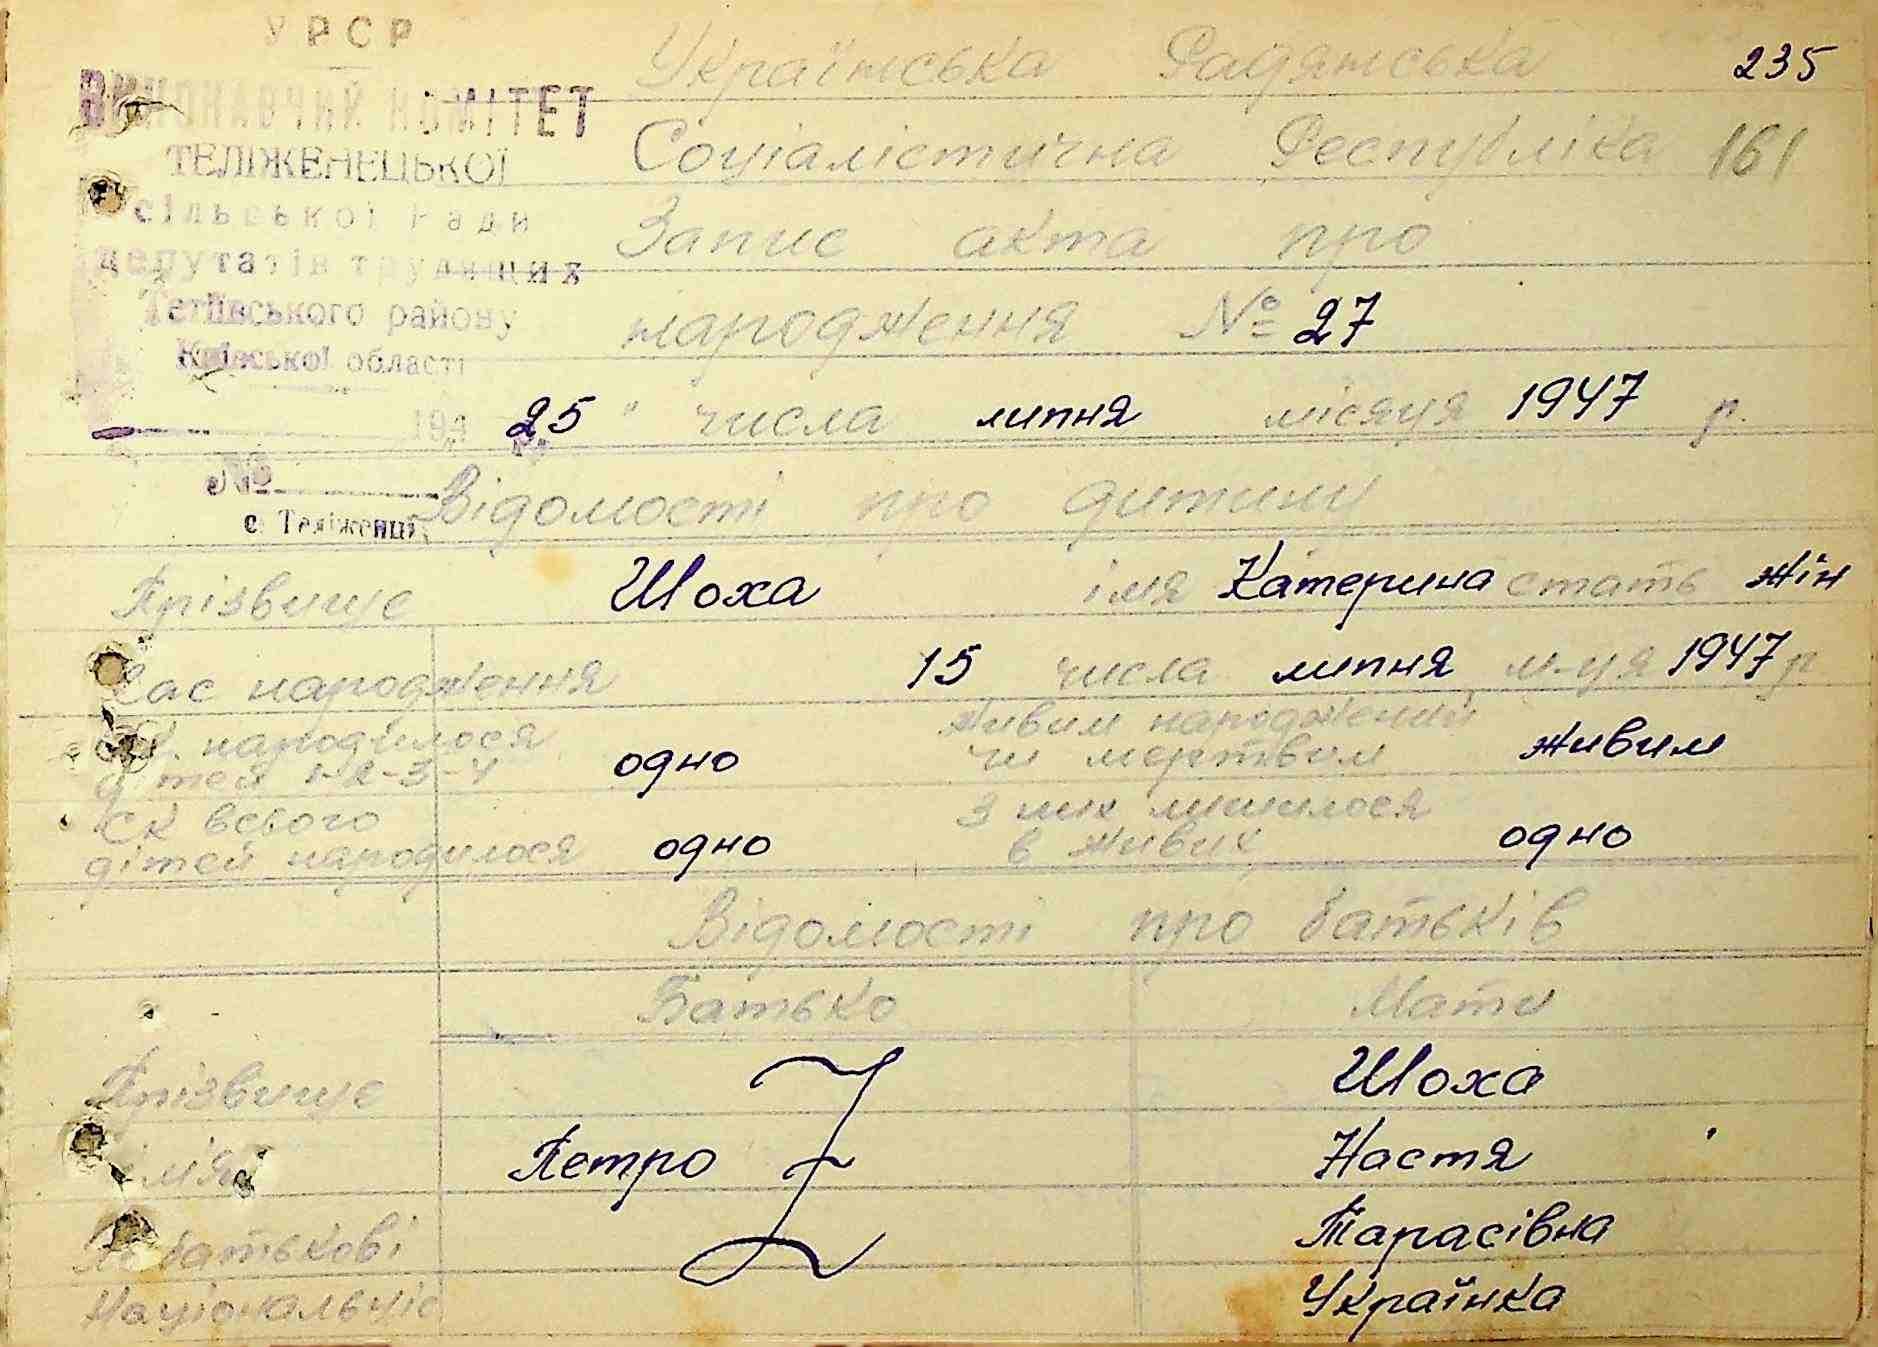 УРСР
ВИКОНАВЧИЙ КОМІТЕТ
ТЕЛІЖЕНЕЦЬКОЇ
сільської Ради
депутатів трудящих
Тетіївського району
Київської області
194
№
с. Теліженці
Українська Радянська 235
Соціалістична Республіка 161
Запис акта про
народження № 27
25 " числа липня місяця 1947 р.
Відомості про дитину
Прізвище Шоха імя Катерина стать жін
Час народження 15 числа липня м-ця 1947 р
Ск. народилося дітей 1-2-3-4 одно живим народжений чи мертвим живим
Ск всього дітей народилося одно З них лишилося в живих одно
Відомості про батьків
Батько Мати
Прізвище Шоха
імя Петро Настя
По батькові Тарасівна
Національніс Українка